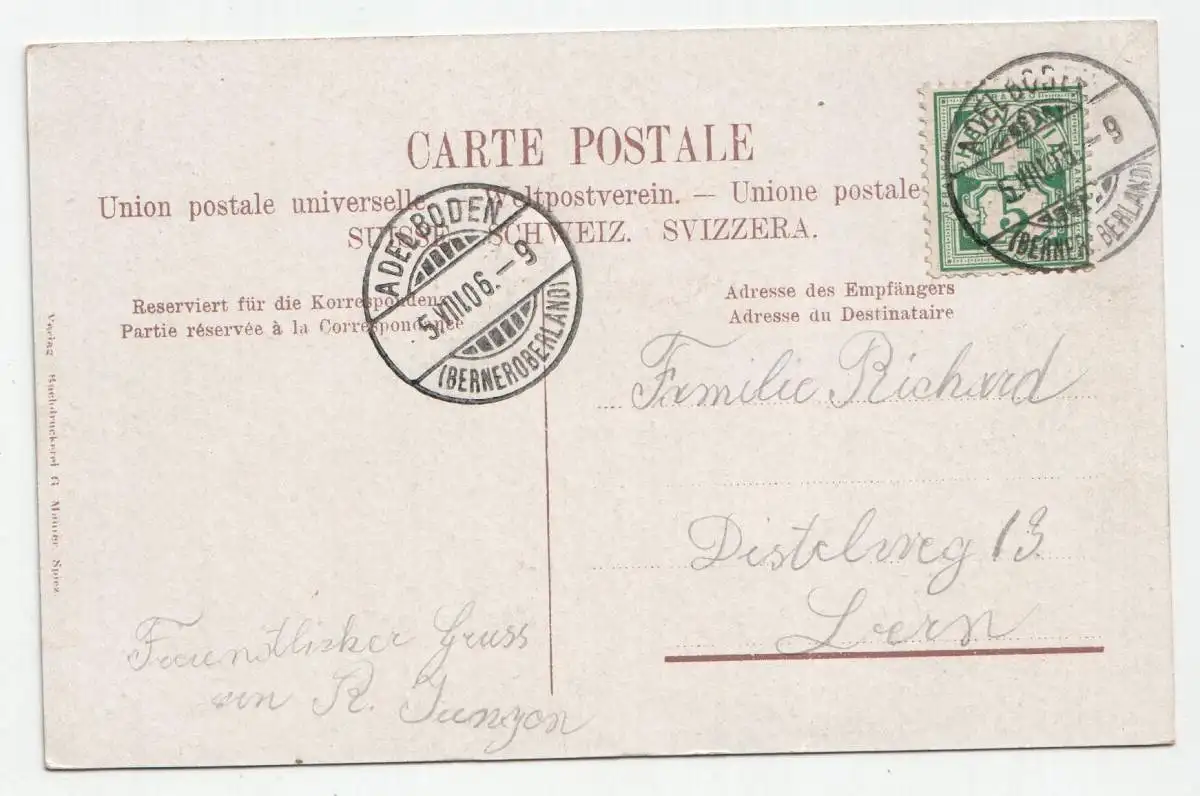 CARTE POSTALE
Union postale universelle. Weltpostverein. – Unione postale
SUISSE. SCHWEIZ. SVIZZERA.
ADELBODEN
5.VIII.06.–9
(BERNEROBERLAND)
ADELBODEN
5.VIII.06.–9
(BERNEROBERLAND)
5
Reserviert für die Korrespondenz
Partie réservée à la Correspondance
Adresse des Empfängers
Adresse du Destinataire
Familie Richard
Distelweg 13
Bern
Freundlicher Gruss
von R.
Verlag Buchdruckerei G. Maurer Spiez